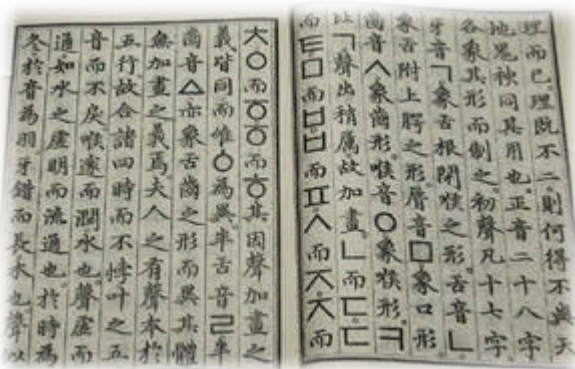 理而已。理既不二。則何得不與天
地鬼神同其用也。正音二十八字。
各象其形而制之。初聲凡十七字。
牙音ㄱ象舌根閉喉之形。舌音ㄴ
象舌附上腭之形。脣音ㅁ象口形。
齒音ㅅ象齒形。喉音ㅇ象喉形。ㅋ
比ㄱ聲出稍厲故加畫。ㄴ而ㄷㄷ
而ㅌㅁ而ㅂㅂ而ㅍㅅ而ㅈㅈ而
ㅊㅇ而ㆆㆆ而ㅎ其因聲加畫之
義皆同而唯ㆁ為異。半舌音ㄹ半
齒音ㅿ亦象舌齒之形而異其體
無加畫之義焉。夫人之有聲本於
五行。故合諸四時而不悖叶之五
音而不戾。喉邃而潤水也。聲虛而
通如水之虛明而流通也。於時為
冬於音為羽。牙錯而長木也。聲似